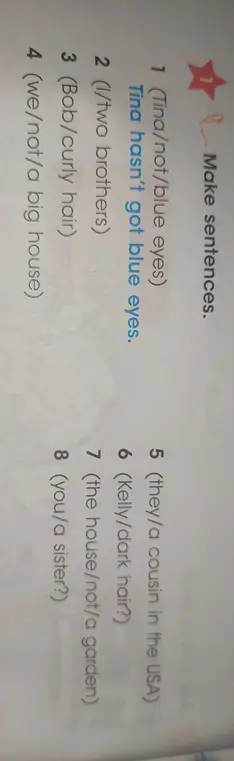 1
Make sentences.
1 (Tina/not/blue eyes)
Tina hasn't got blue eyes.
2 (I/two brothers)
3 (Bob/curly hair)
4 (we/not/a big house)
5 (they/a cousin in the USA)
6 (Kelly/dark hair?)
7 (the house/not/a garden)
8 (you/a sister?)